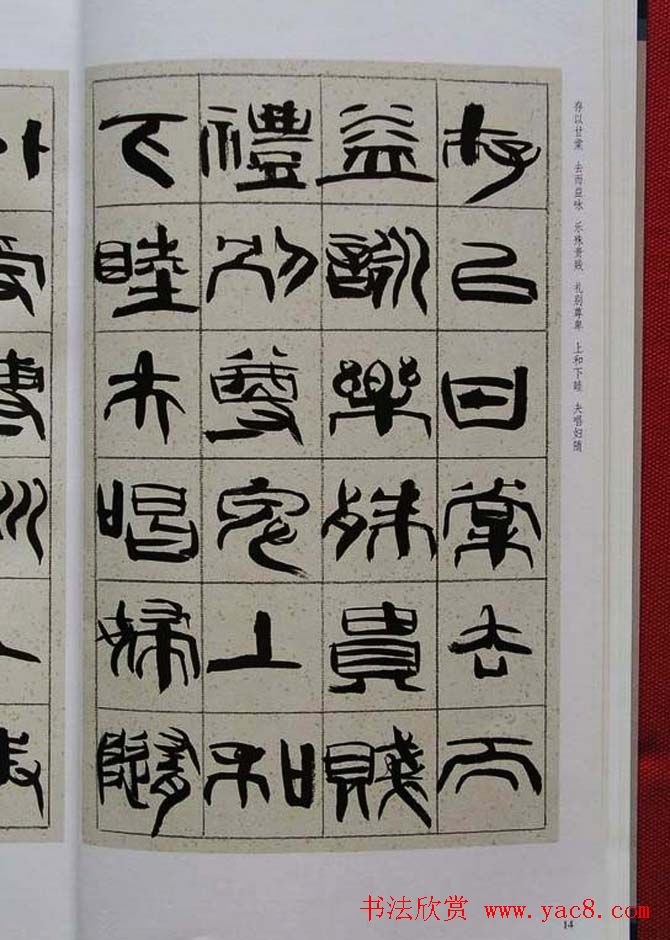 存以甘棠 去而益咏 乐殊贵贱 礼别尊卑 上和下睦 夫唱妇随
存以甘棠去而
益詠樂殊貴賤
禮别尊卑上和
下睦夫唱婦隨
14
书法欣赏 www.yac8.com